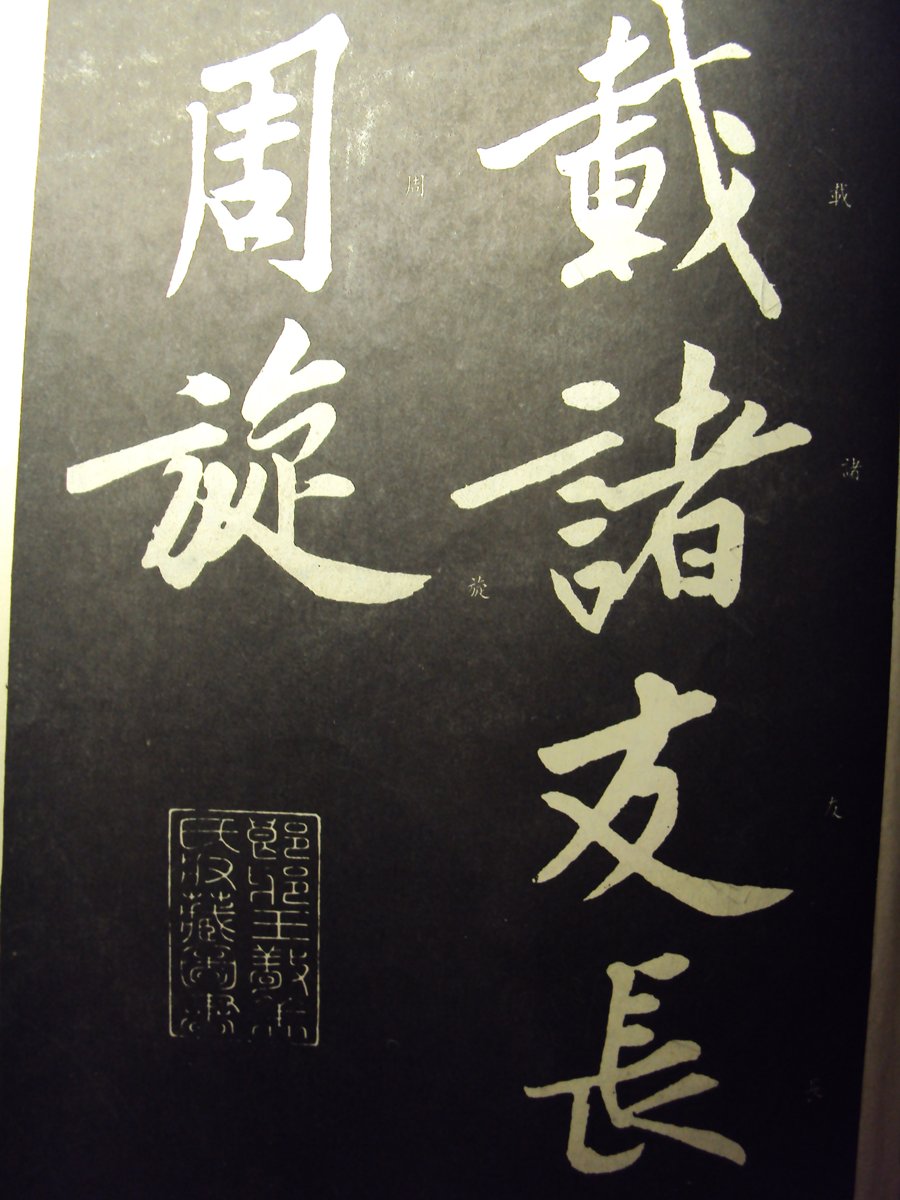 載諸友長
周旋
載
諸
友
長
周
旋